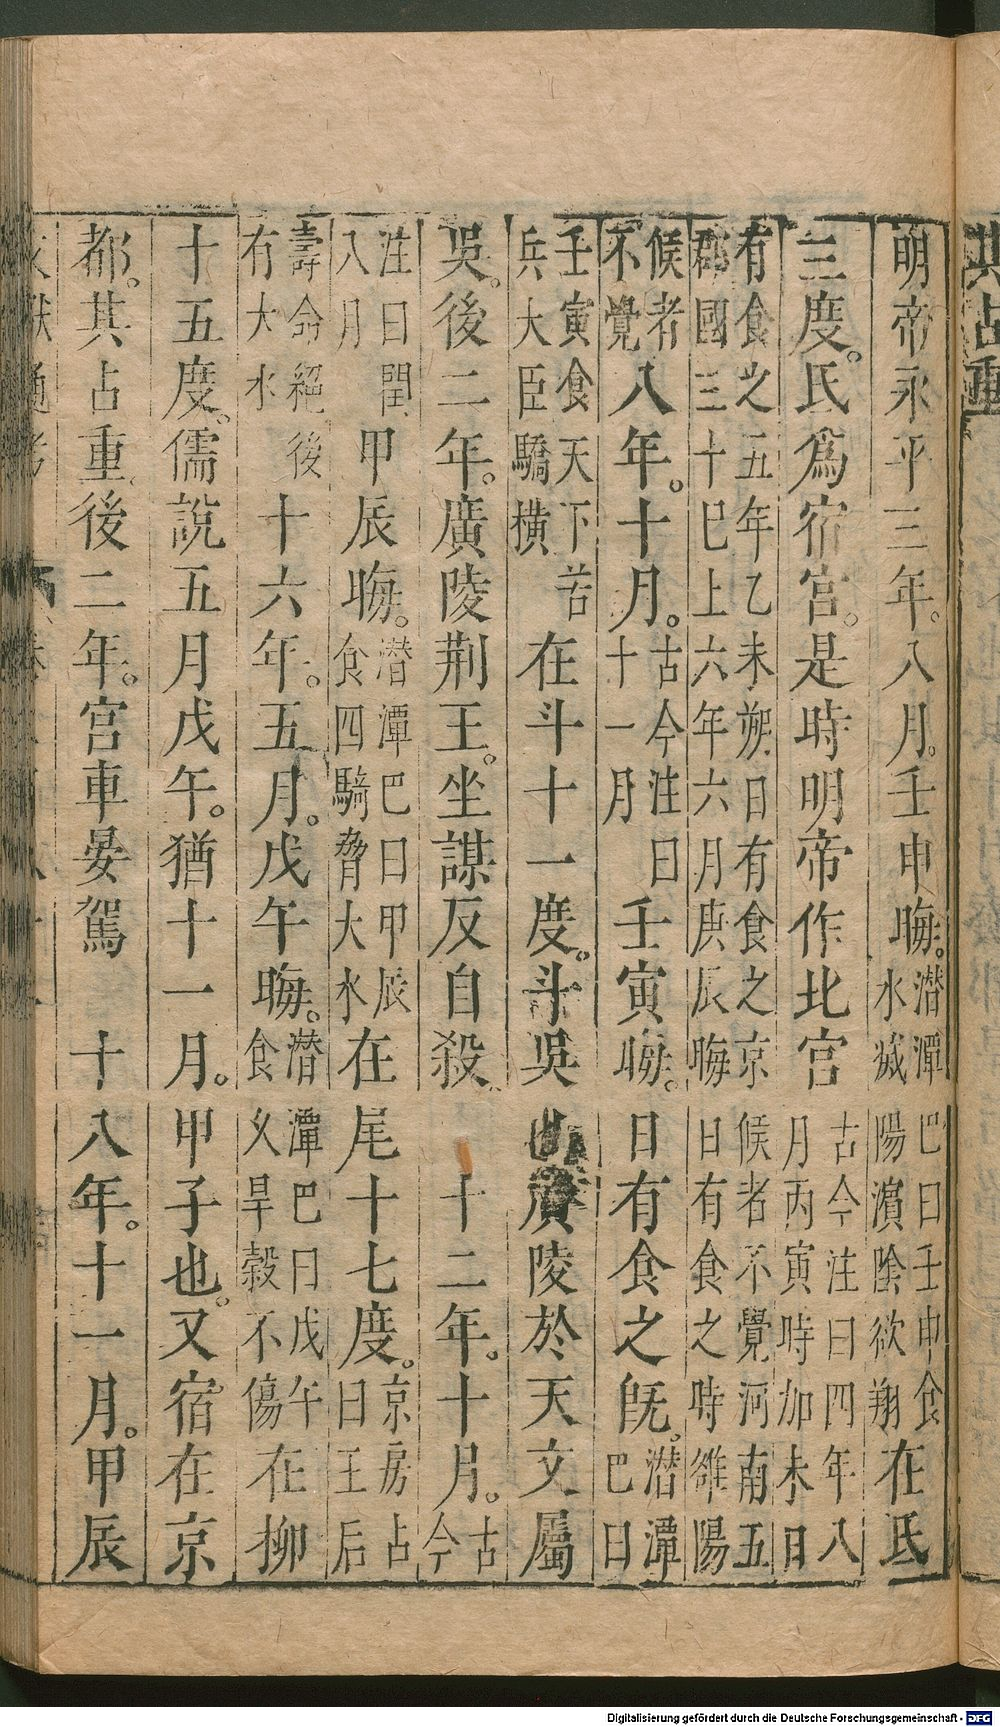 其占重
明帝永平三年。八月。壬申晦。潛潭巴曰壬申食水滅陽濵陰欲翔在氐
三度。氐爲宿宮。是時明帝作北宮古今注曰四年八月丙寅時加未日
有食之五年乙未朔日有食之京候者不覺河南五郡國三十巳上六年六月庚辰晦日有食之時雒陽
候者不覺八年。十月。古今注曰十一月壬寅晦。日有食之旣。潛潭巴曰
壬寅食天下苦兵大臣驕橫在斗十一度。斗吳也廣陵於天文屬
吳。後二年。廣陵荆王。坐謀反自殺 十二年。十月。古今
注曰閏八月甲辰晦。潛潭巴曰甲辰食四騎脅大水在尾十七度。京房占曰王后
壽命絕後有大水十六年。五月。戊午晦。潛潭巴曰戊午食久旱穀不傷在柳
十五度。儒說五月戊午。猶十一月。甲子也。又宿在京
都。其占重後二年。宮車晏駕 十八年。十一月。甲辰
Digitalisierung gefördert durch die Deutsche Forschungsgemeinschaft - DFG